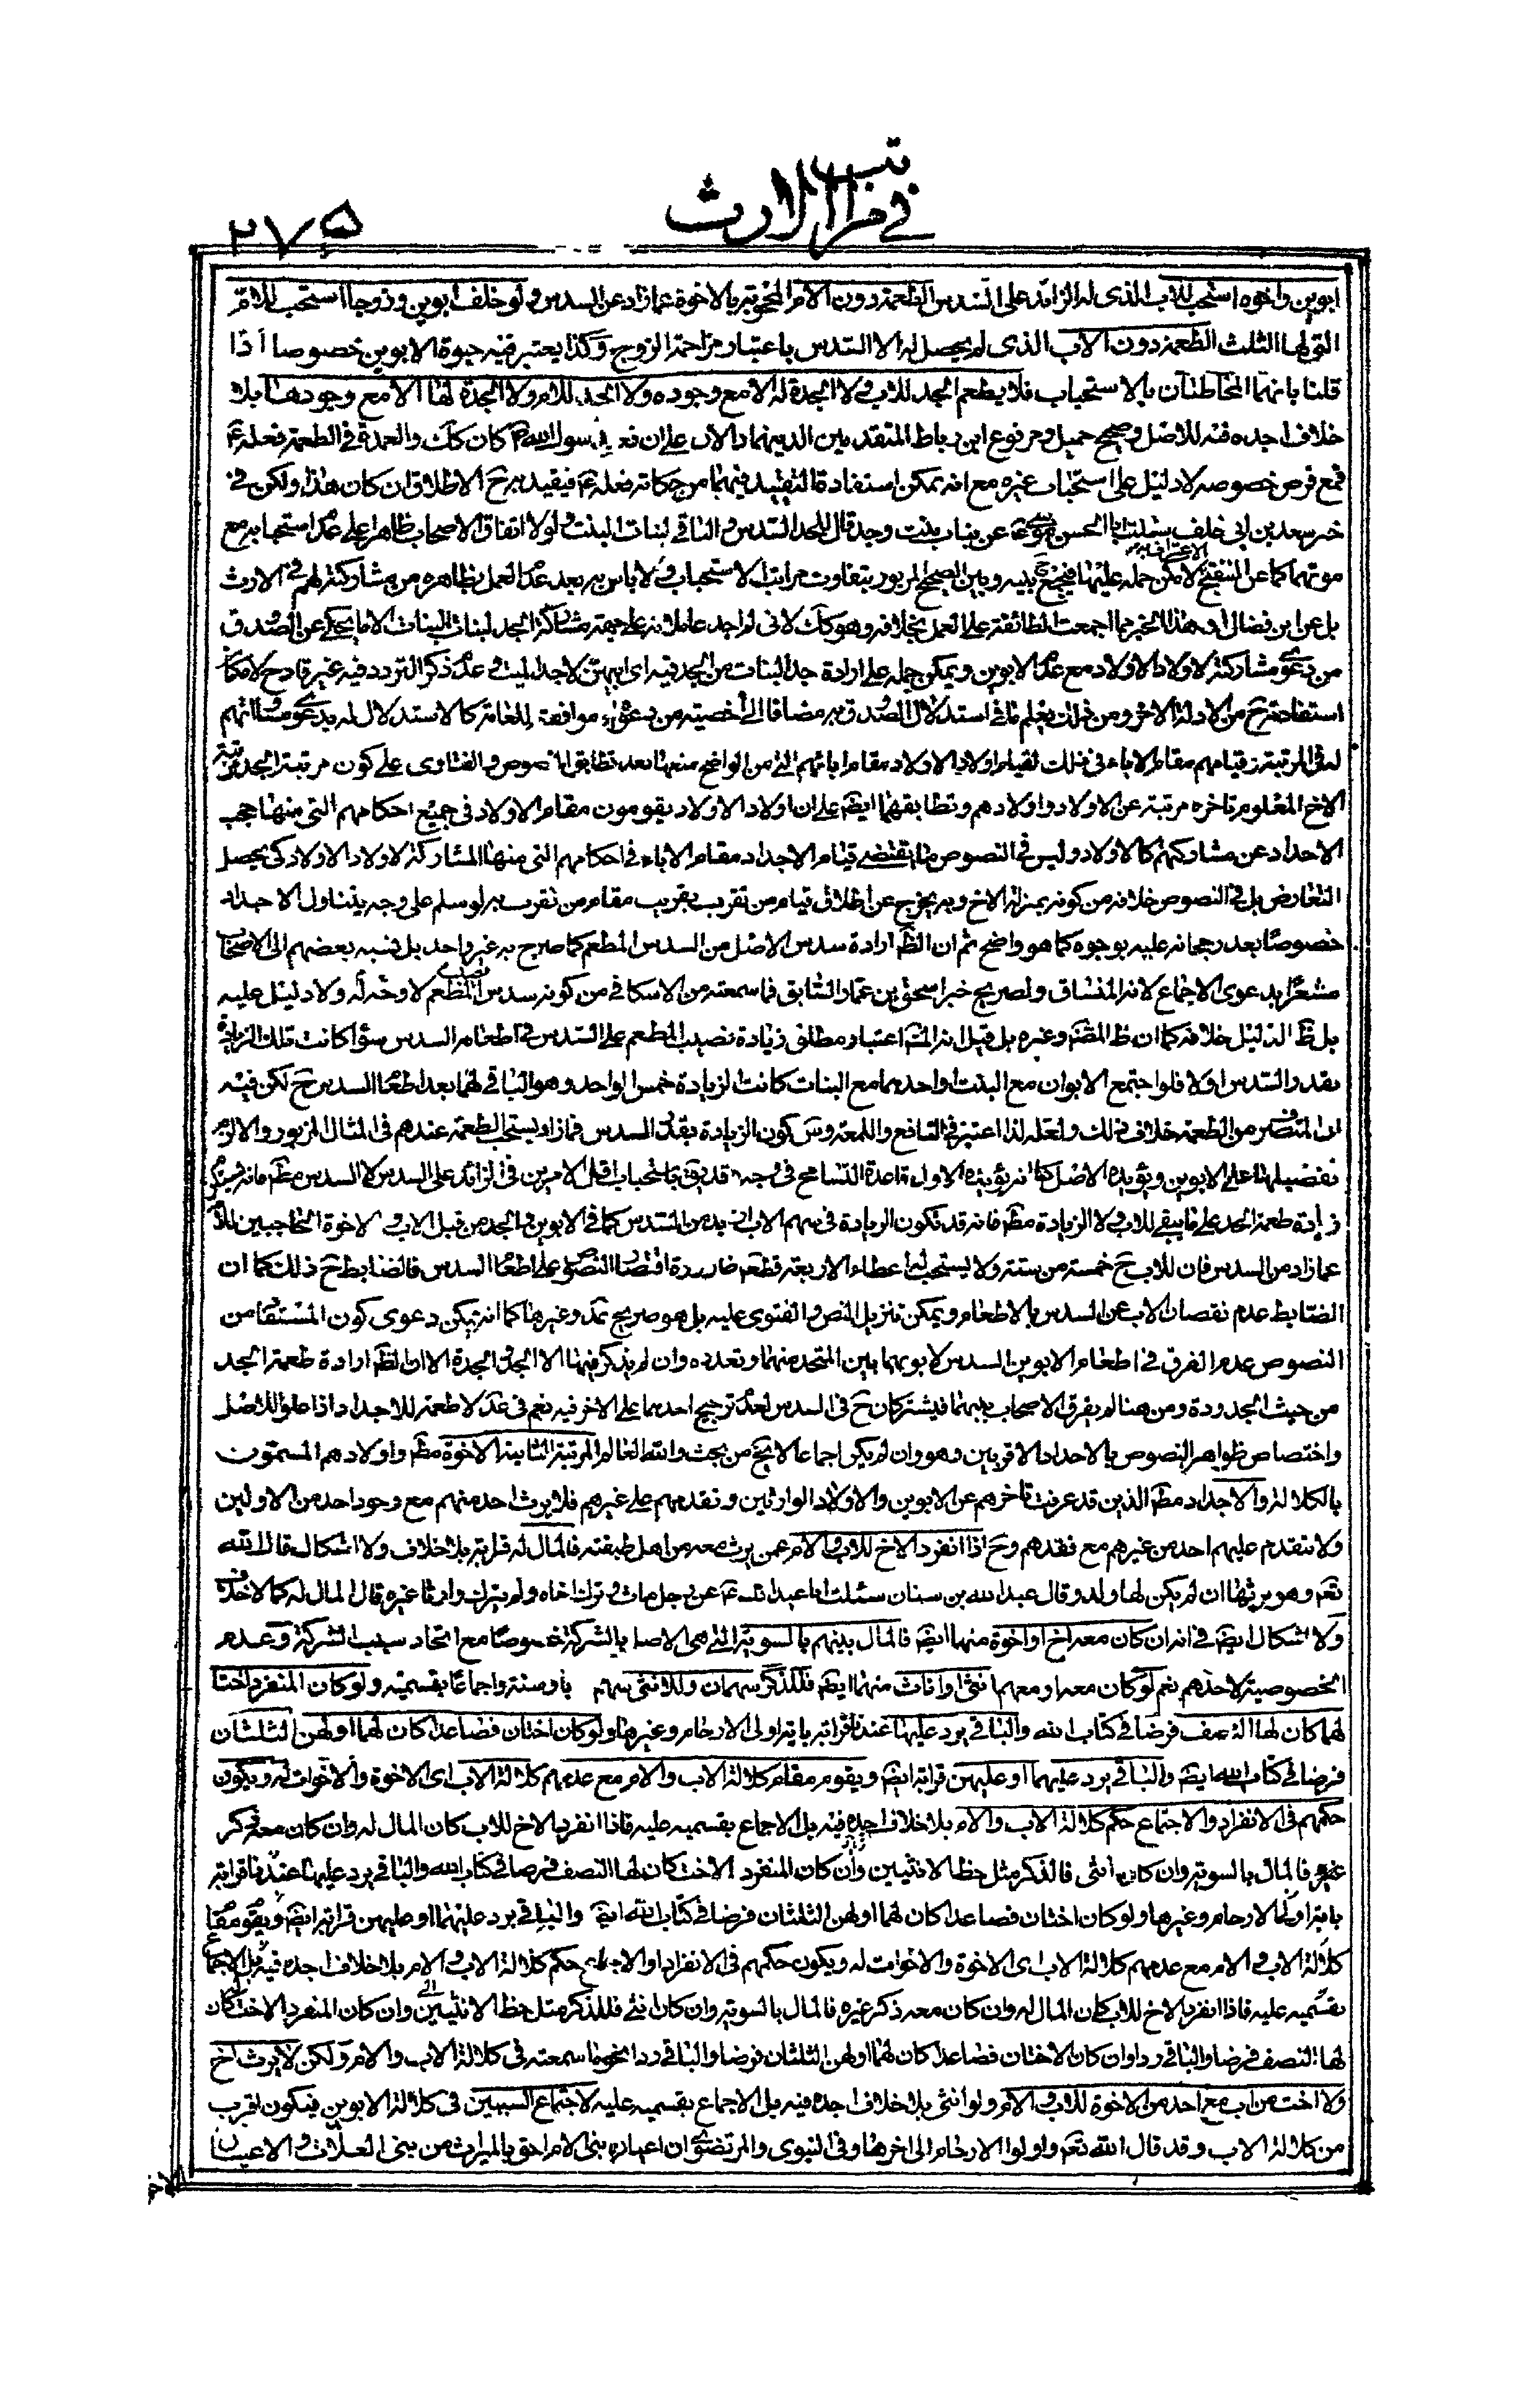 في مراتب الارث
٢٧٥
ابوين واخوة استحب للاب الذى له الزائد على السدس الطعمة دون الام المحجوبة بالاخوة عما زاد عن السدس ولو خلف ابوين وزوجا استحب للام
التي لها الثلث الطعمة دون الاب الذى لم يحصل له الا السدس باعتبار مزاحمة الزوج وكذا يعتبر فيه حيوة الابوين خصوصا اذا
قلنا بانهما المخاطبان بالاستحباب فلا يطعم الجد للاب ولا الجدة له الا مع وجوده ولا الجد للام ولا الجدة لها الا مع وجودها بلا
خلاف اجده فيه للاصل وصحيح جميل ومرفوع ابن رباط المتقدمين الدين دالان على ان رسول الله كان كك والعمدة في الطعمة فعله
فمع فرض خصوصه لا دليل على استحباب غيره مع انه يمكن استفادة التقييد فيهما من حكاية فعله فيقيد به ح الاطلاق ان كان هذا ولكن في
خبر سعد بن ابى خلف سئلت ابا الحسن موسى عن بنات بنت وجد قال للجد السدس والباقي لبنات البنت ولولا اتفاق الاصحاب ظاهرا على عدم استحبابه مع
موتهما كما عن التنقيح الاعتراف به لامكن حمله عليها فيجمع ح بينه وبين الصحيح المزبور بتفاوت مراتب الاستحباب ولا باس به بعد عدم العمل بظاهره من مشاركته لهم في الارث
بل عن ابن فضال ان هذا الخبر مما اجمعت الطائفة على العمل بخلافه وهو كك لانى لم اجد عاملا به على جهة مشاركة الجد لبنات البنات الا ما يحكى عن الصدوق
من دعوى مشاركته لاولاد الاولاد مع عدم الابوين ويمكن حمله على ارادة جد البنات من الجد فيه اى ابيهن لا جد الميت وعدم ذكر التردد فيه غير قادح لامكان
استفادته ح من الادلة الاخر ومن ذلك يعلم ما في استدلال الصدوق به مضافا الى اخصيته من دعواه موافقة للعامة كالاستدلال له بدعوى مساواتهم
له في المرتبة وقيامهم مقام الاباء في ذلك لقيام اولاد الاولاد مقام ابائهم التي من الواضح منعها بعد تطابق النصوص والفتاوى على كون مرتبة الجد مرتبة
الاخ المعلوم تاخره مرتبة عن الاولاد واولادهم وتطابقهما ايضا على ان اولاد الاولاد يقومون مقام الاولاد في جميع احكامهم التي منها حجب
الاجداد عن مشاركتهم كالاولاد وليس في النصوص ما يقتضى قيام الاجداد مقام الاباء في احكامهم التي منها المشاركة لاولاد الاولاد كى يحصل
التعارض بل في النصوص خلافه من كونه بمنزلة الاخ وبه يخرج عن اطلاق قيام من تقرب بقريب مقام من تقرب به لو سلم على وجه يتناول الاجداد
خصوصا بعد رجحانه عليه بوجوه كما هو واضح ثم ان الظ ارادة سدس الاصل من السدس المطعم كما صرح به غير واحد بل نسبه بعضهم الى الاصحاب
مشعرا بدعوى الاجماع لانه المنساق ولصريح خبر اسحق بن عمار السابق فما سمعته من الاسكافي من كونه سدس نصيب المطعم لا وجه له ولا دليل عليه
بل ظ الدليل خلافه كما ان ظ المصنف وغيره بل قيل انه المش اعتبار مطلق زيادة نصيب المطعم على السدس في اطعام السدس سواء كانت تلك الزيادة
بقدر السدس اولا فلو اجتمع الابوان مع البنت او احدهما مع البنات كانت الزيادة خمس الواحد وهو الباقي لهما بعد اطعام السدس ح لكن فيه
ان المتصير من الطعمة خلاف ذلك ولعله لذا اعتبر في النافع واللمعة وس كون الزيادة بقدر السدس فما زاد يستحب الطعمة عندهم في المثال المزبور والا لزم
تفضيلها على الابوين ويؤيده الاصل كما انه يؤيد الاول قاعدة التسامح في وجه قد يق باستحباب اقل الامرين في الزائد على السدس لا السدس مطلقا فانه قد تكون
زيادة طعمة الجد على ما يبقى للاب ولا الزيادة مطلقا فانه قد تكون الزيادة في سهم الاب ازيد من السدس كما في الابوين والجد من قبل الاب والاخوة الحاجبين للام
عما زاد من السدس فان للاب ح خمسة من ستة ولا يستحب له اعطاء الاربعة قطعا ضرورة اقتصار النصوص على اطعام السدس فالضابط ح ذلك كما ان
الضابط عدم نقصان الاب عن السدس بالاطعام ويمكن تنزيل النص والفتوى عليه بل هو صريح عد وغيرها كما انه يمكن دعوى كون المستفاد من
النصوص عدم الفرق في اطعام الابوين السدس لابويهما بين المتحد منهما وتعدده وان لم يذكر فيها الا الجد والجدة الا ان الظ ارادة طعمة الجد
من حيث الجدودة ومن هنا لم يفرق الاصحاب بينهما فيشتركان ح في السدس لعدم ترجيح احدهما على الاخر فيه نعم في عد لا طعمة للاجداد اذا علوا للاصل
واختصاص ظواهر النصوص بالاجداد الاقربين وهو وان لم يكن اجماعا لا يخ من بحث والله العالم المرتبة الثانية الاخوة مطلقا واولادهم المسمون
بالكلالة والاجداد مطلقا الذين قد عرفت تاخرهم عن الابوين والاولاد الوارثين وتقدمهم على غيرهم فلا يرث احد منهم مع وجود احد من الاولين
ولا يتقدم عليهم احد من غيرهم مع فقدهم وح اذا انفرد الاخ للاب والام عمن يرث معه من اهل طبقته فالمال له قرابة بلا خلاف ولا اشكال قال الله
تعم وهو يرثها ان لم يكن لها ولد وقال عبد الله بن سنان سئلت ابا عبد الله عن رجل مات وترك اخاه ولم يترك وارثا غيره قال المال له كما لا خلاف
ولا اشكال ايضا في انه ان كان معه اخ او اخوة منهما ايضا فالمال بينهم بالسوية التي هى الاصل بالشركة خصوصا مع اتحاد سبب الشركة وعدم
الخصوصية لاحدهم نعم لو كان معه او معهم انثى او اناث منهما ايضا فللذكر سهمان وللانثى سهم وسنة واجماعا بقسميه ولو كان المنفرد اختا
لهما كان لها النصف فرضا في كتاب الله والباقي يرد عليها عندنا قرابة باية اولى الارحام وغيرها ولو كان اختان فصاعدا كان لهما اولهن الثلثان
فرضا في كتاب الله ايضا والباقي يرد عليهما او عليهن قرابة ايضا ويقوم مقام كلالة الاب والام مع عدمهم كلالة الاب اى الاخوة والاخوات له ويكون
حكمهم في الانفراد والاجتماع حكم كلالة الاب والام بلا خلاف اجده فيه بل الاجماع بقسميه عليه فاذا انفرد الاخ للاب كان المال له وان كان معه ذكر
غيره فالمال بالسوية وان كان انثى فالذكر مثل حظ الانثيين وان كان المنفرد الاخت كان لها النصف فرضا في كتاب الله والباقي يرد عليها عندنا قرابة
باية اولى الارحام وغيرها ولو كان اختان فصاعدا كان لهما اولهن الثلثان فرضا في كتاب الله ايضا والباقي يرد عليهما او عليهن قرابة ايضا ويقوم مقام
كلالة الاب والام مع عدمهم كلالة الاب اى الاخوة والاخوات له ويكون حكمهم في الانفراد والاجتماع حكم كلالة الاب والام بلا خلاف اجده فيه بل الاجماع
بقسميه عليه فاذا انفرد الاخ للاب كان المال له وان كان معه ذكر غيره فالمال بالسوية وان كان انثى فللذكر مثل حظ الانثيين وان كان المنفرد الاخت كان
لها النصف فرضا والباقي ردا وان كان الاختان فصاعدا كان لهما اولهن الثلثان فرضا والباقي ردا نحو ما سمعته في كلالة الاب والام ولكن لا يرث اخ
ولا اخت من اب مع احد من الاخوة للاب والام ولو انثى بلا خلاف اجده فيه بل الاجماع بقسميه عليه لاجتماع السببين في كلالة الابوين فيكون اقرب
من كلالة الاب وقد قال الله تعم واولوا الارحام الى اخرها وفى النبوى والمرتضوى ان اعيان بنى الام احق بالميراث من بنى العلات والاعيان